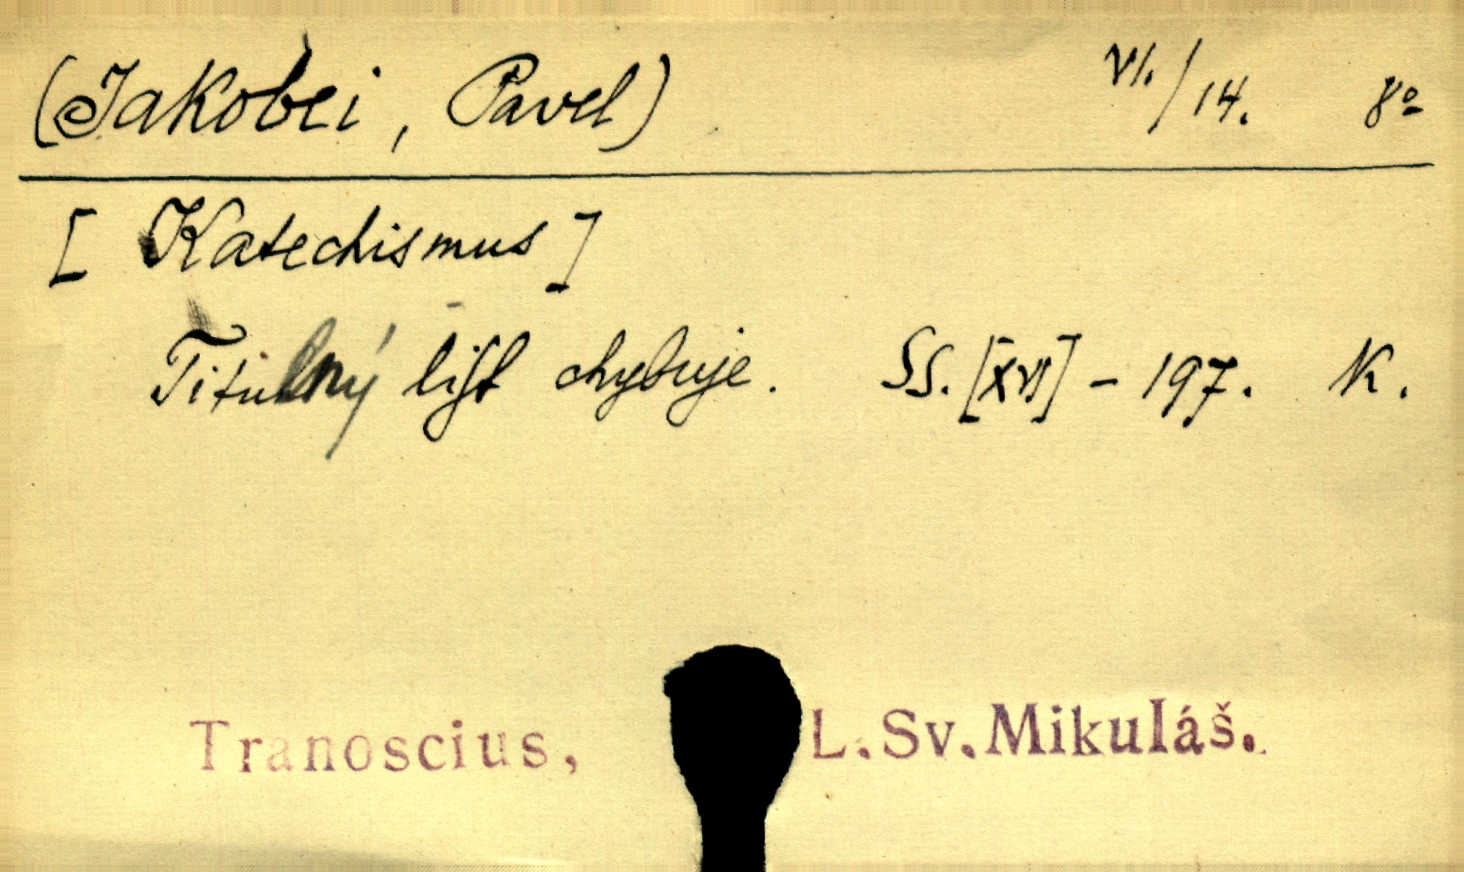 (Jakobei, Pavel) VI./14. 8º
[Katechismus]
Titulný list chybuje. SS. [XVI] - 197. K.
Tranoscius, L. Sv. Mikuláš.